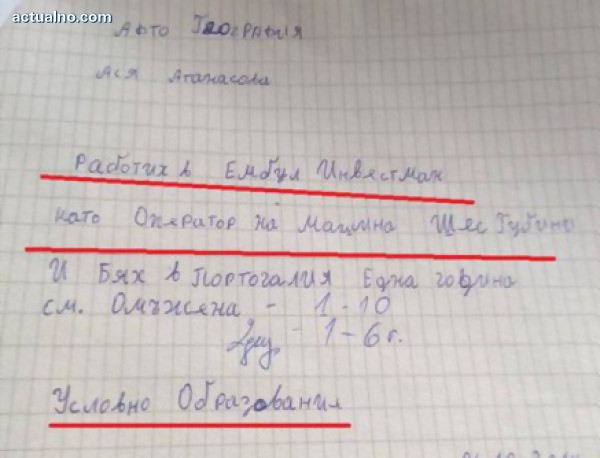 actualno.com
Афто География
Ася Атанасова
Работих в Ембул Инвестман
като Оператор на Машина Шес Гудини
И Бях в Портогалия Една година
см. Омъжена - 1-10
2дец - 1-6 г.
Условно Образования